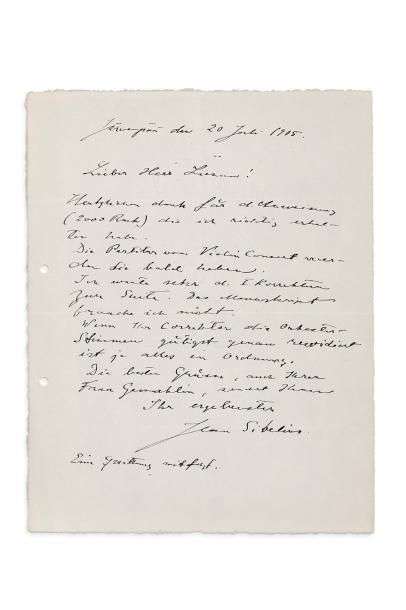 Järvenpää den 20 Juli 1905.
Lieber Herr Lienau!
Herzlichen Dank für d. Überweisung
(2000 Rmk) die ich richtig erhal-
ten habe.
Die Partitur vom Violin Concert wer-
den Sie bald haben.
Ich warte sehr d. I Korrektur
zur Suite. Das Manuskript
brauche ich nicht.
Wenn Ihr Correktor die Orchester-
Stimmen gütigst genau revidiert
ist ja alles in Ordnung.
Die besten Grüsse, auch Ihrer
Frau Gemahlin, sendet Ihnen
Ihr ergebenster
Jean Sibelius
Eine Quittung mitfolgt.